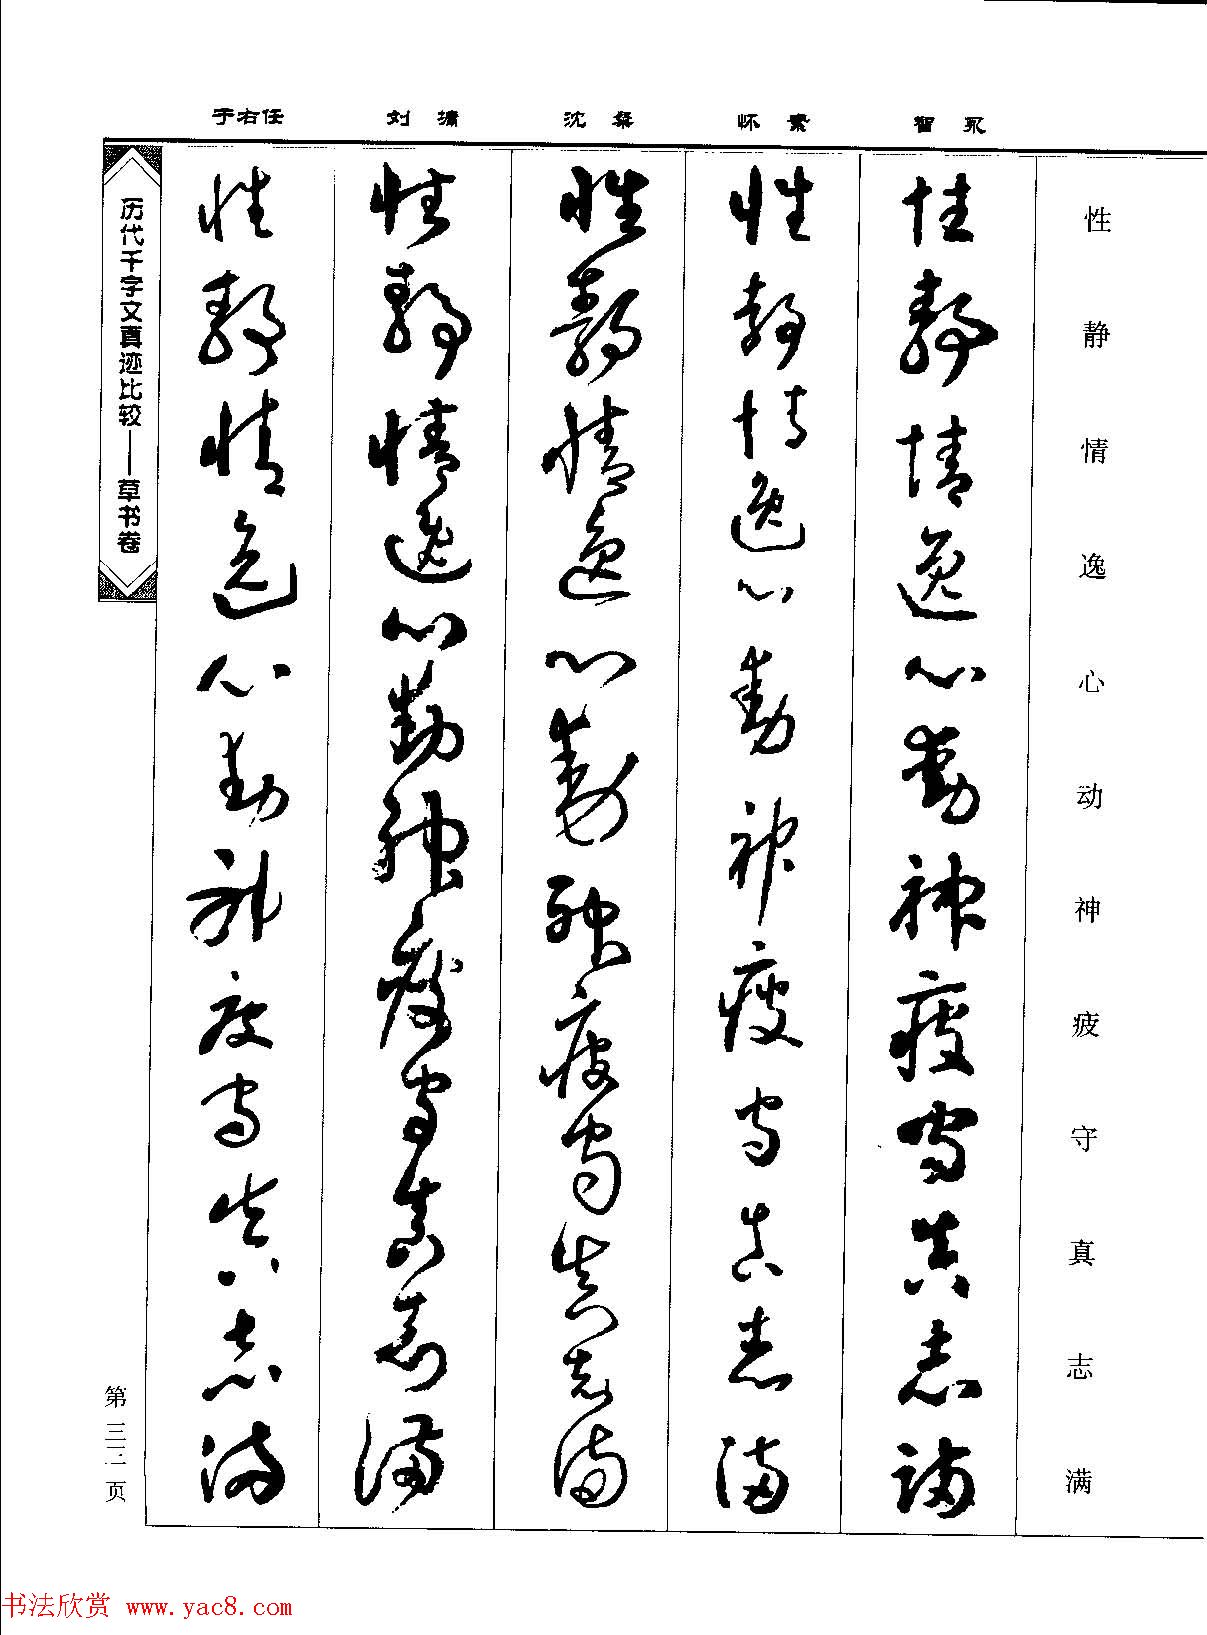 智永
怀素
沈粲
刘墉
于右任
性静情逸心动神疲守真志满
性静情逸心动神疲守真志满
性静情逸心动神疲守真志满
性静情逸心动神疲守真志满
性静情逸心动神疲守真志满
性静情逸心动神疲守真志满
历代千字文真迹比较——草书卷
第三二页
书法欣赏 www.yac8.com